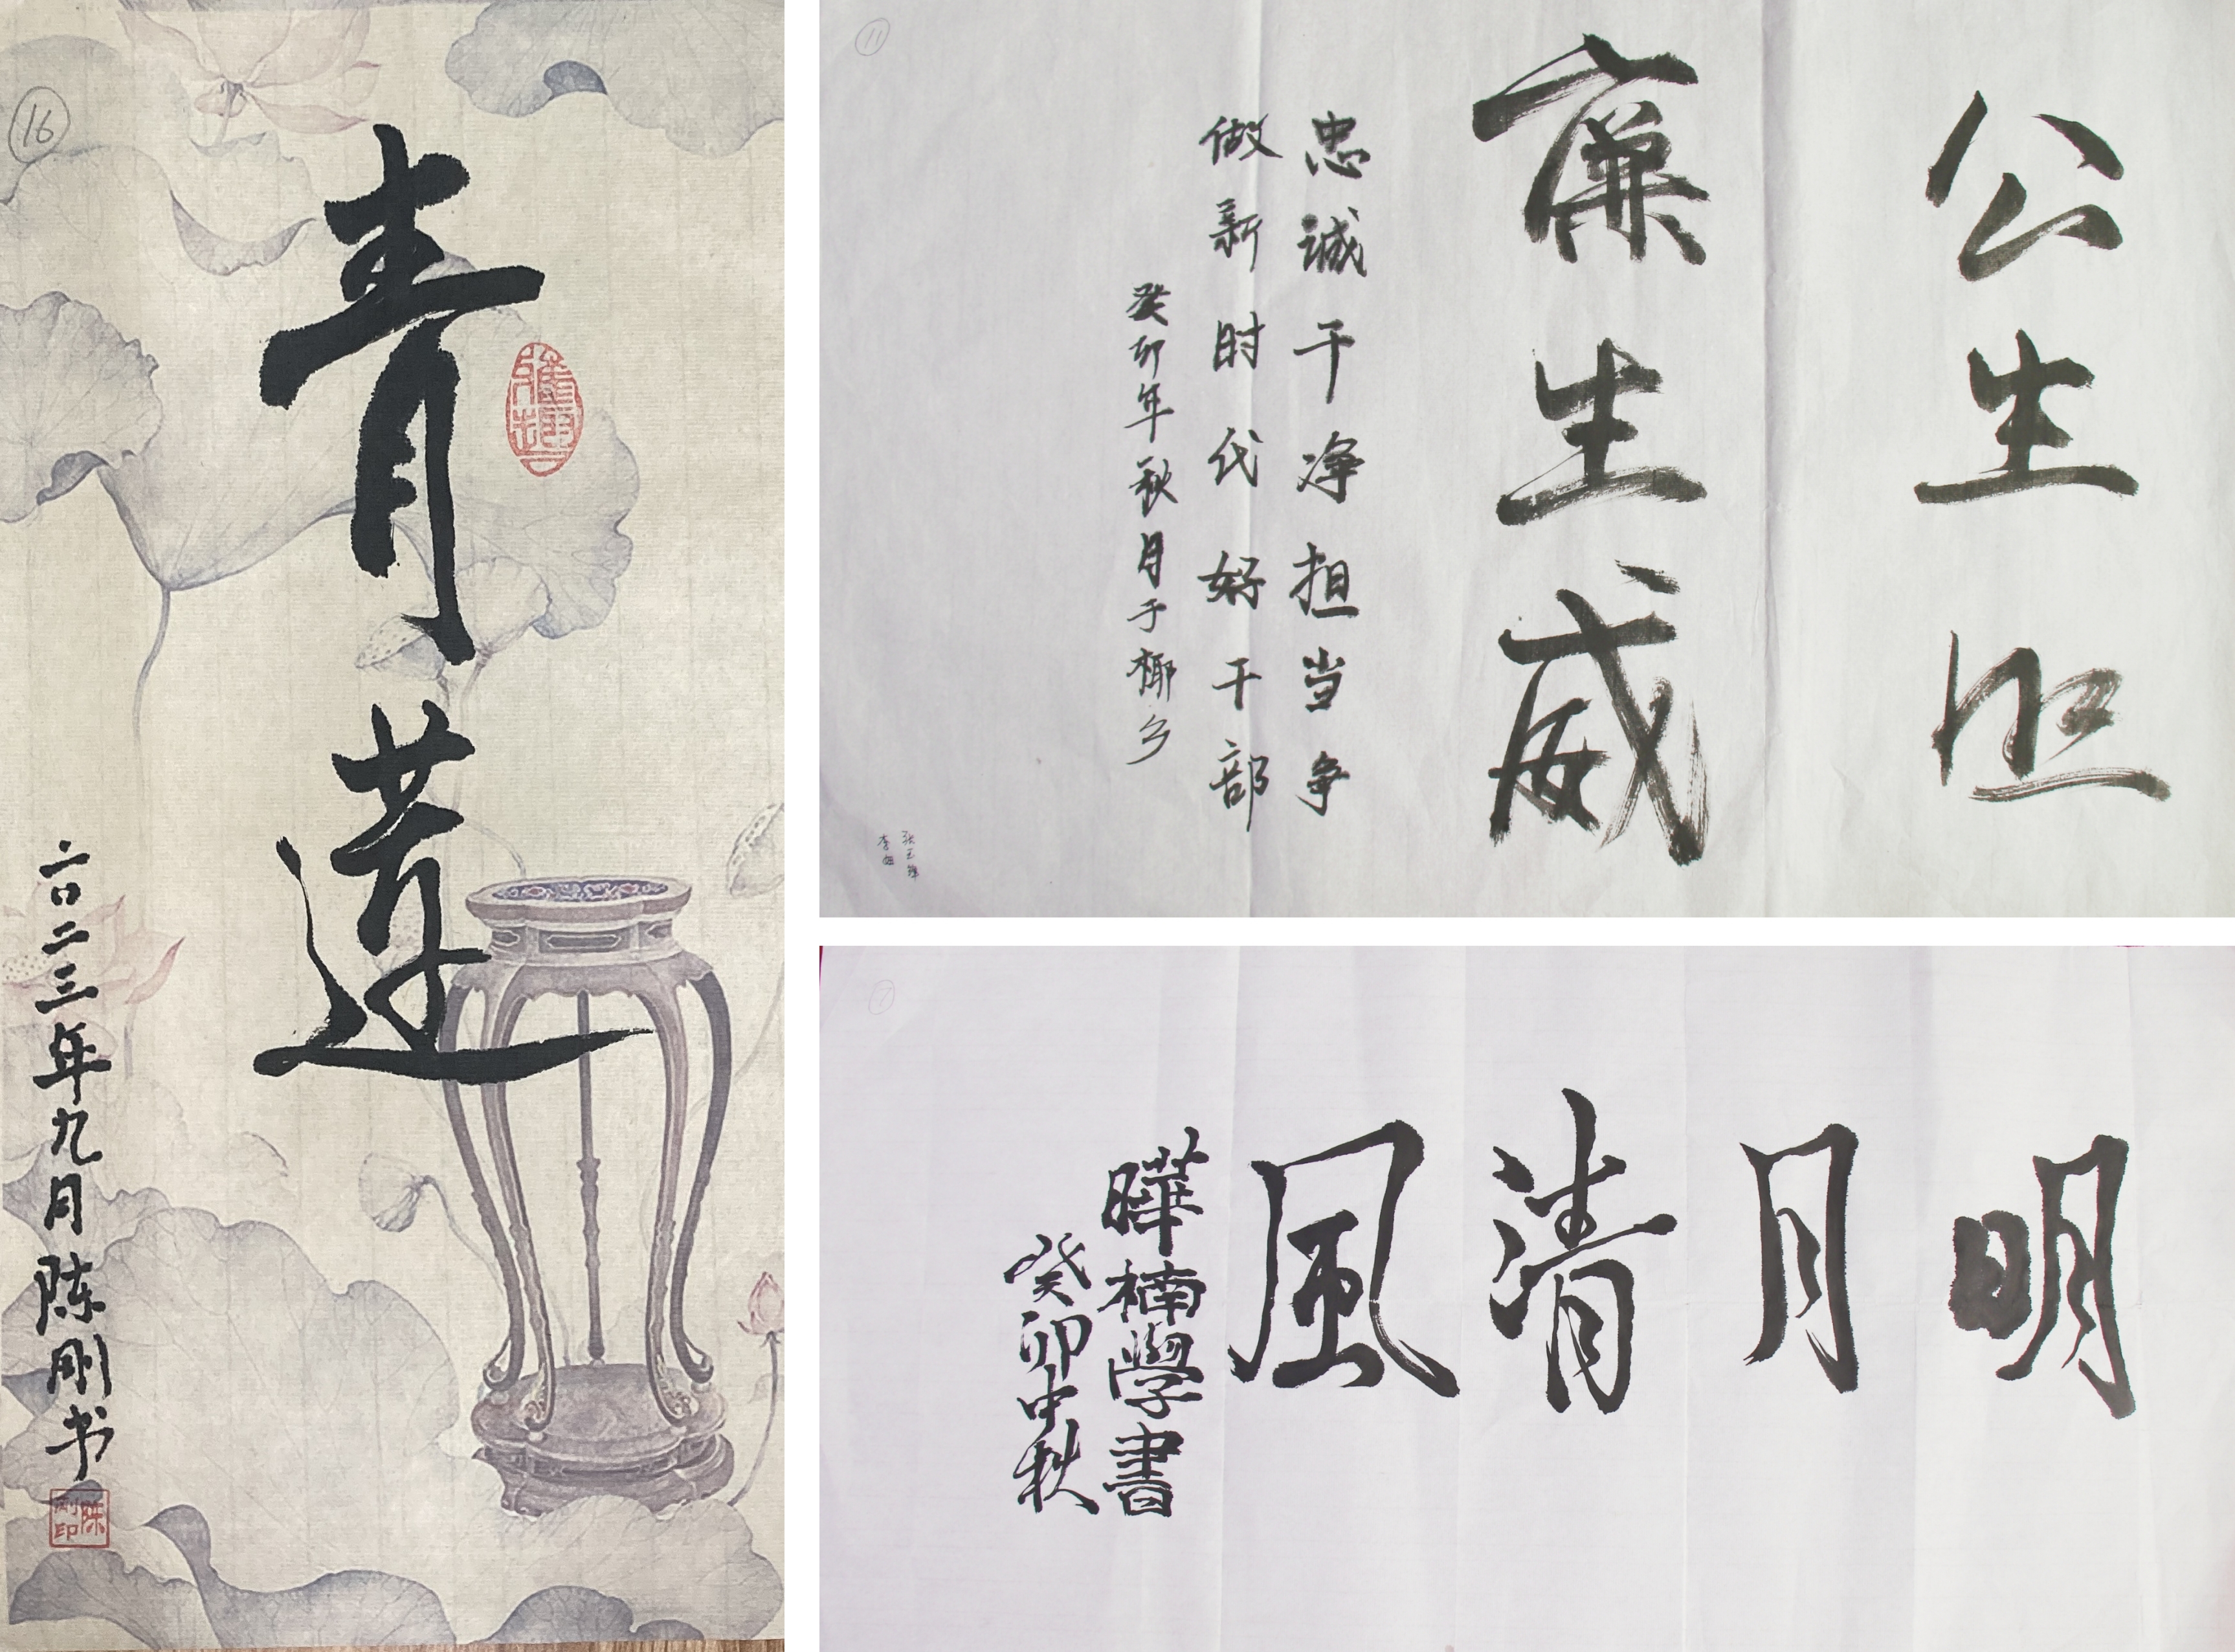 16
青莲
二〇二三年九月陈刚书
陈刚印
11
公生明
廉生威
忠诚干净担当争
做新时代好干部
癸卯年秋月于椰乡
7
明月清風
曄楠學書
癸卯中秋